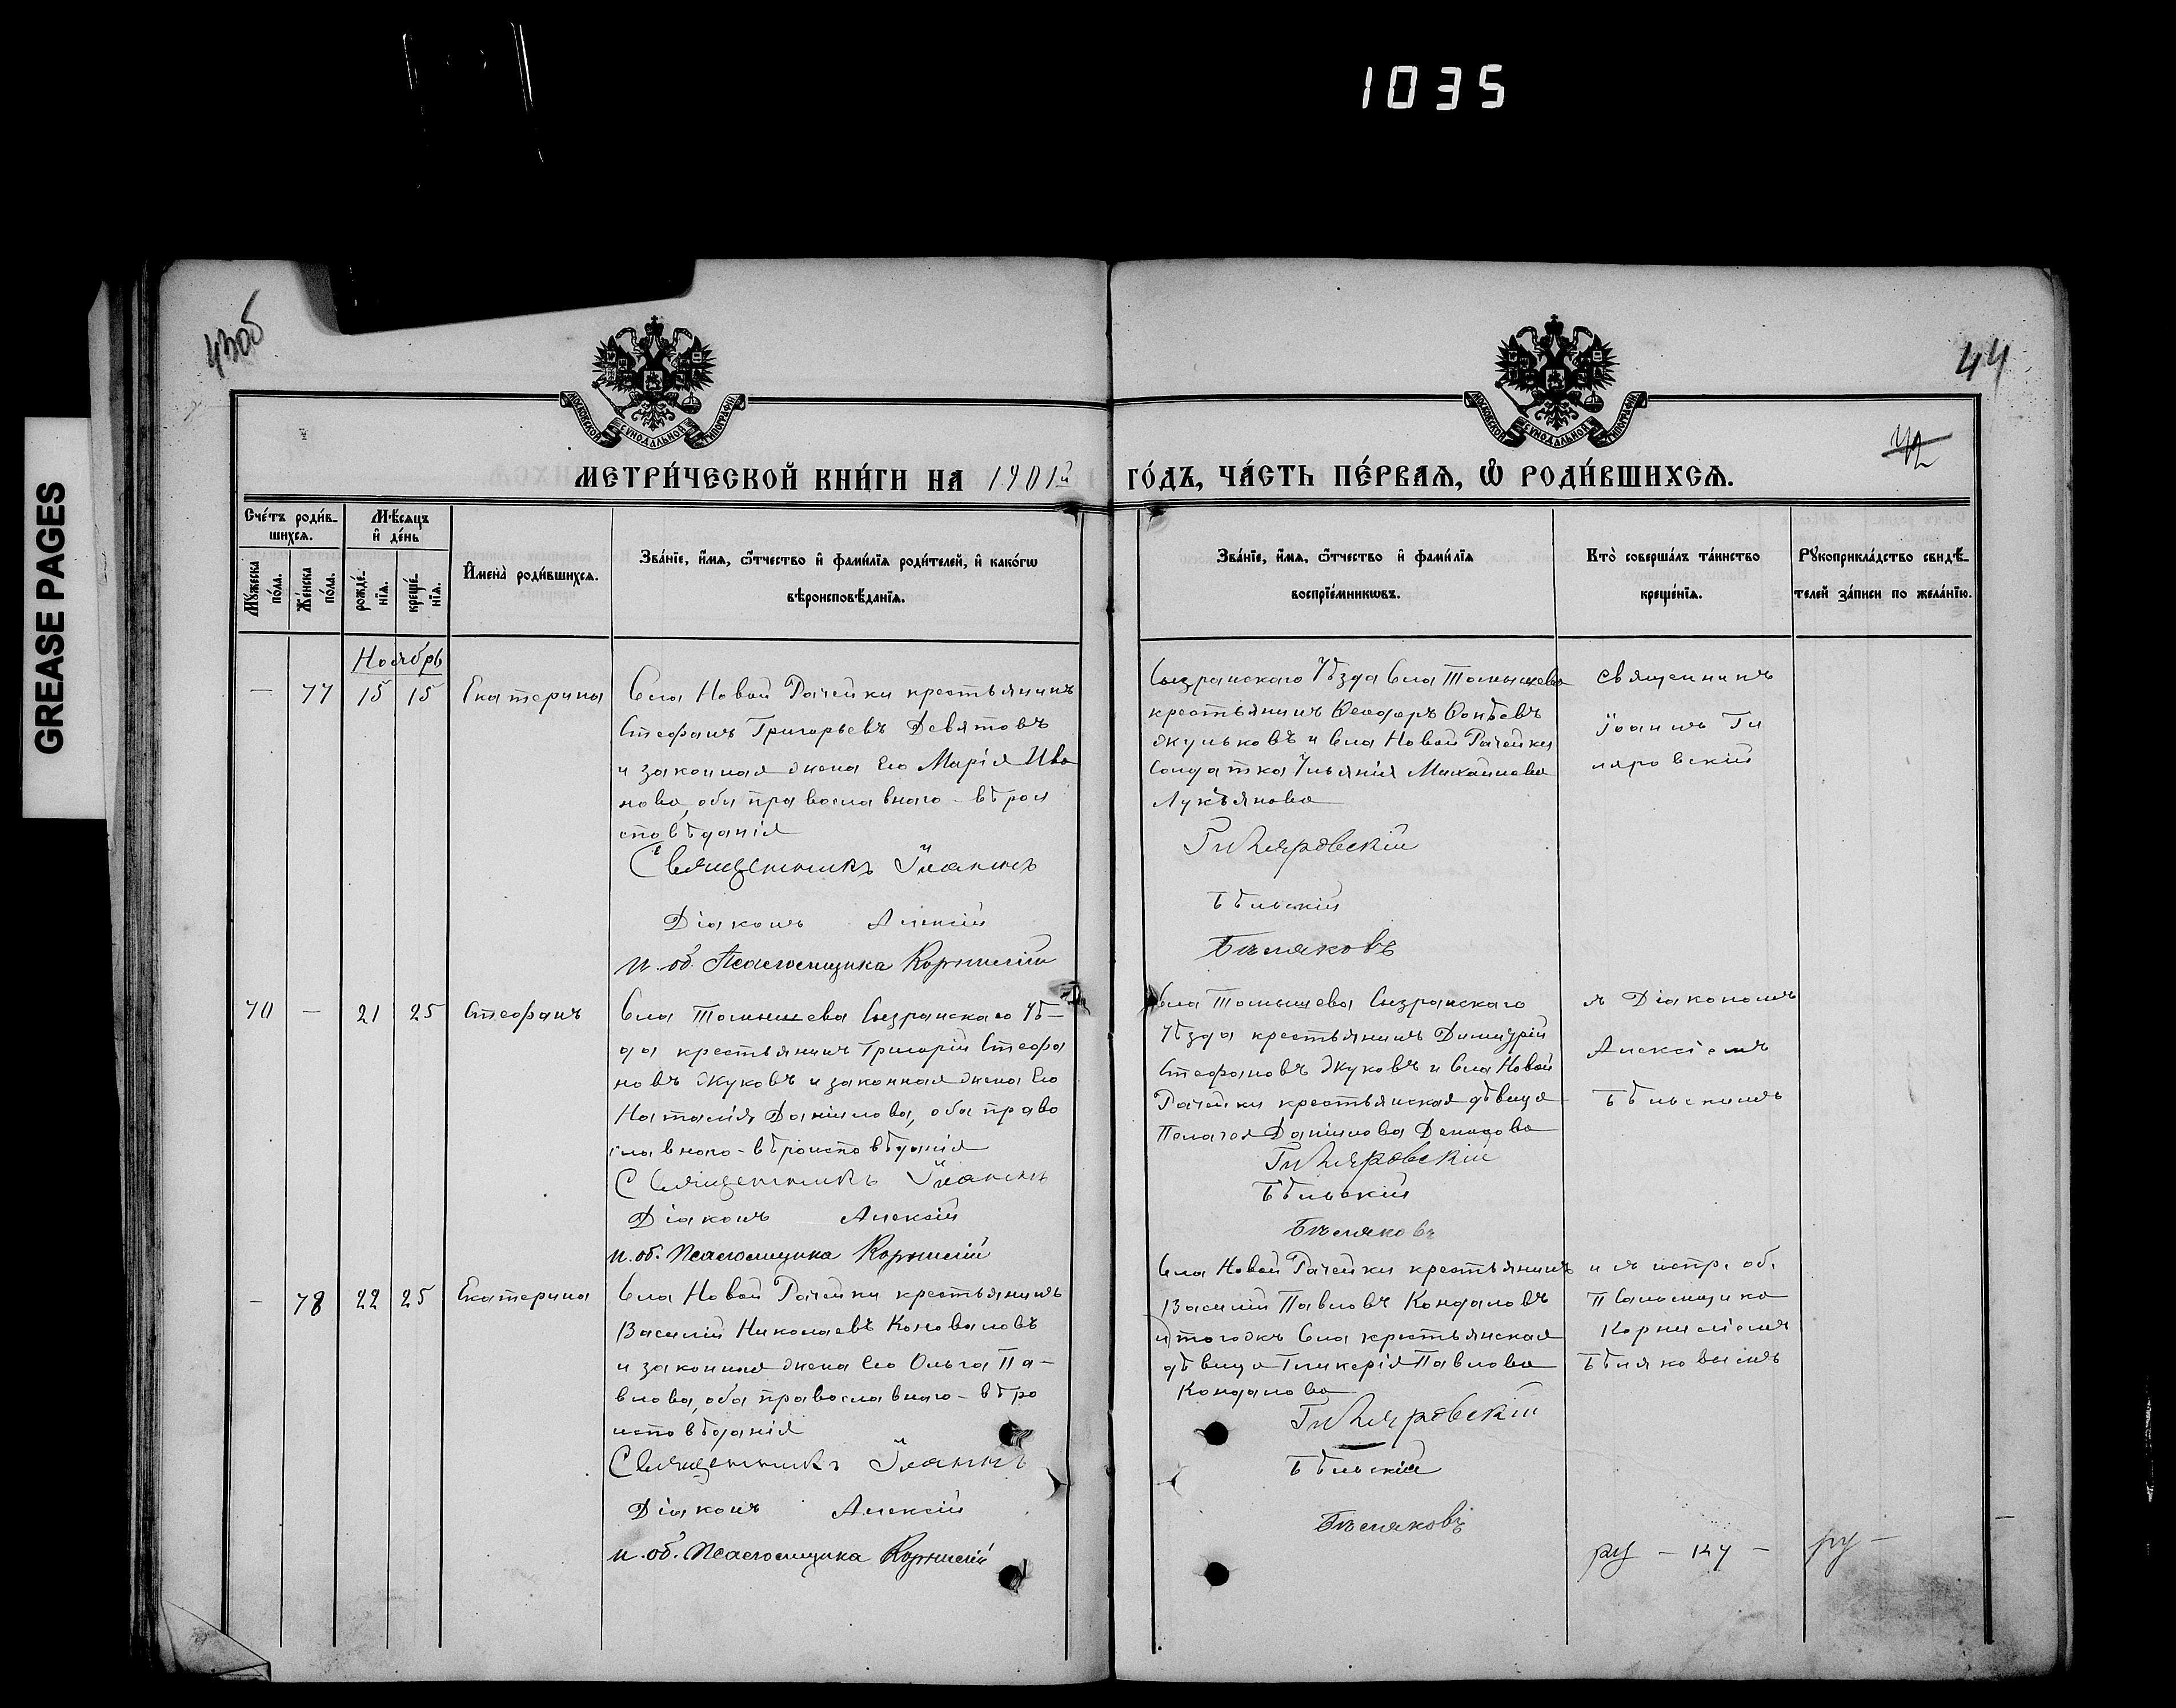 1035
GREASE PAGES
43об
44
42
МОСКОВСКОЙ СѴНОДАЛЬНОЙ ТИПОГРАФІИ
МОСКОВСКОЙ СѴНОДАЛЬНОЙ ТИПОГРАФІИ
МЕТРИ́ЧЕСКОЙ КНИ́ГИ НА 1901й ГО́ДЪ, ЧА́СТЬ ПЕ́РВАѦ, Ѽ РОДИ́ВШИХСѦ.
Сче́тъ роди́в-
шихсѧ.
Мꙋ́жеска
по́ла.
Же́нска
по́ла.
Мѣ́сѧцъ
и҆ де́нь
рожде́-
нїѧ.
креще́-
нїѧ.
И҆мена̀ роди́вшихсѧ.
Зва́нїе, и҆́мѧ, ѻ҆́тчество и҆ фами́лїѧ роди́телей, и҆ како́гѡ
вѣроисповѣ́данїѧ.
Зва́нїе, и҆́мѧ, ѻ҆́тчество и҆ фами́лїѧ
воспрїе́мникѡвъ.
Кто̀ соверша́лъ та́инство
креще́нїѧ.
Рꙋкоприкла́дство свидѣ́-
телей за́писи по жела́нїю.
Ноябрь
— 77 15 15 Екатерина
Села Новой Рачейки крестьянинъ
Стефанъ Григорьевъ Девятовъ
и законная жена его Марія Ива
нова, оба православнаго-вѣрои
сповѣданія
Священникъ Іоаннъ
Діаконъ Алексій
и. об. Псаломщика Корнилій
Сызранскаго Уѣзда Села Томышева
крестьянинъ Ѳеодоръ Ѳокѣевъ
Жульковъ и Села Новой Рачейки
Солдатка Ульянія Михаилова
Лукьянова
Гиляровскій
Бѣльскій
Бѣляковъ
Священникъ
Іоаннъ Ги
ляровскій
70 — 21 25 Стефанъ
Села Томышева Сызранскаго Уѣ-
зда крестьянинъ Григорій Стефа
новъ Жуковъ и законная жена его
Наталія Даніилова, оба право
славнаго-вѣроисповѣданія
Священникъ Іоаннъ
Діаконъ Алексій
и. об. Псаломщика Корнилій
Села Томышева Сызранскаго
Уѣзда крестьянинъ Димитрій
Стефановъ Жуковъ и Села Новой
Рачейки крестьянская дѣвица
Пелагея Даніилова Демидова
Гиляровскій
Бѣльскій
Бѣляковъ
съ Діакономъ
Алексіемъ
Бѣльскимъ
— 78 22 25 Екатерина
Села Новой Рачейки крестьянинъ
Василій Николаевъ Коноваловъ
и законная жена его Ольга Па-
влова, оба православнаго-вѣро
исповѣданія
Священникъ Іоаннъ
Діаконъ Алексій
и. об. Псаломщика Корнилій
Села Новой Рачейки крестьянинъ
Василій Павловъ Кондаловъ
и того же Села крестьянская
дѣвица Гликерія Павлова
Кондалова
Гиляровскій
Бѣльскій
Бѣляковъ
и съ испр. об.
Псаломщика
Корниліемъ
Бѣляковымъ